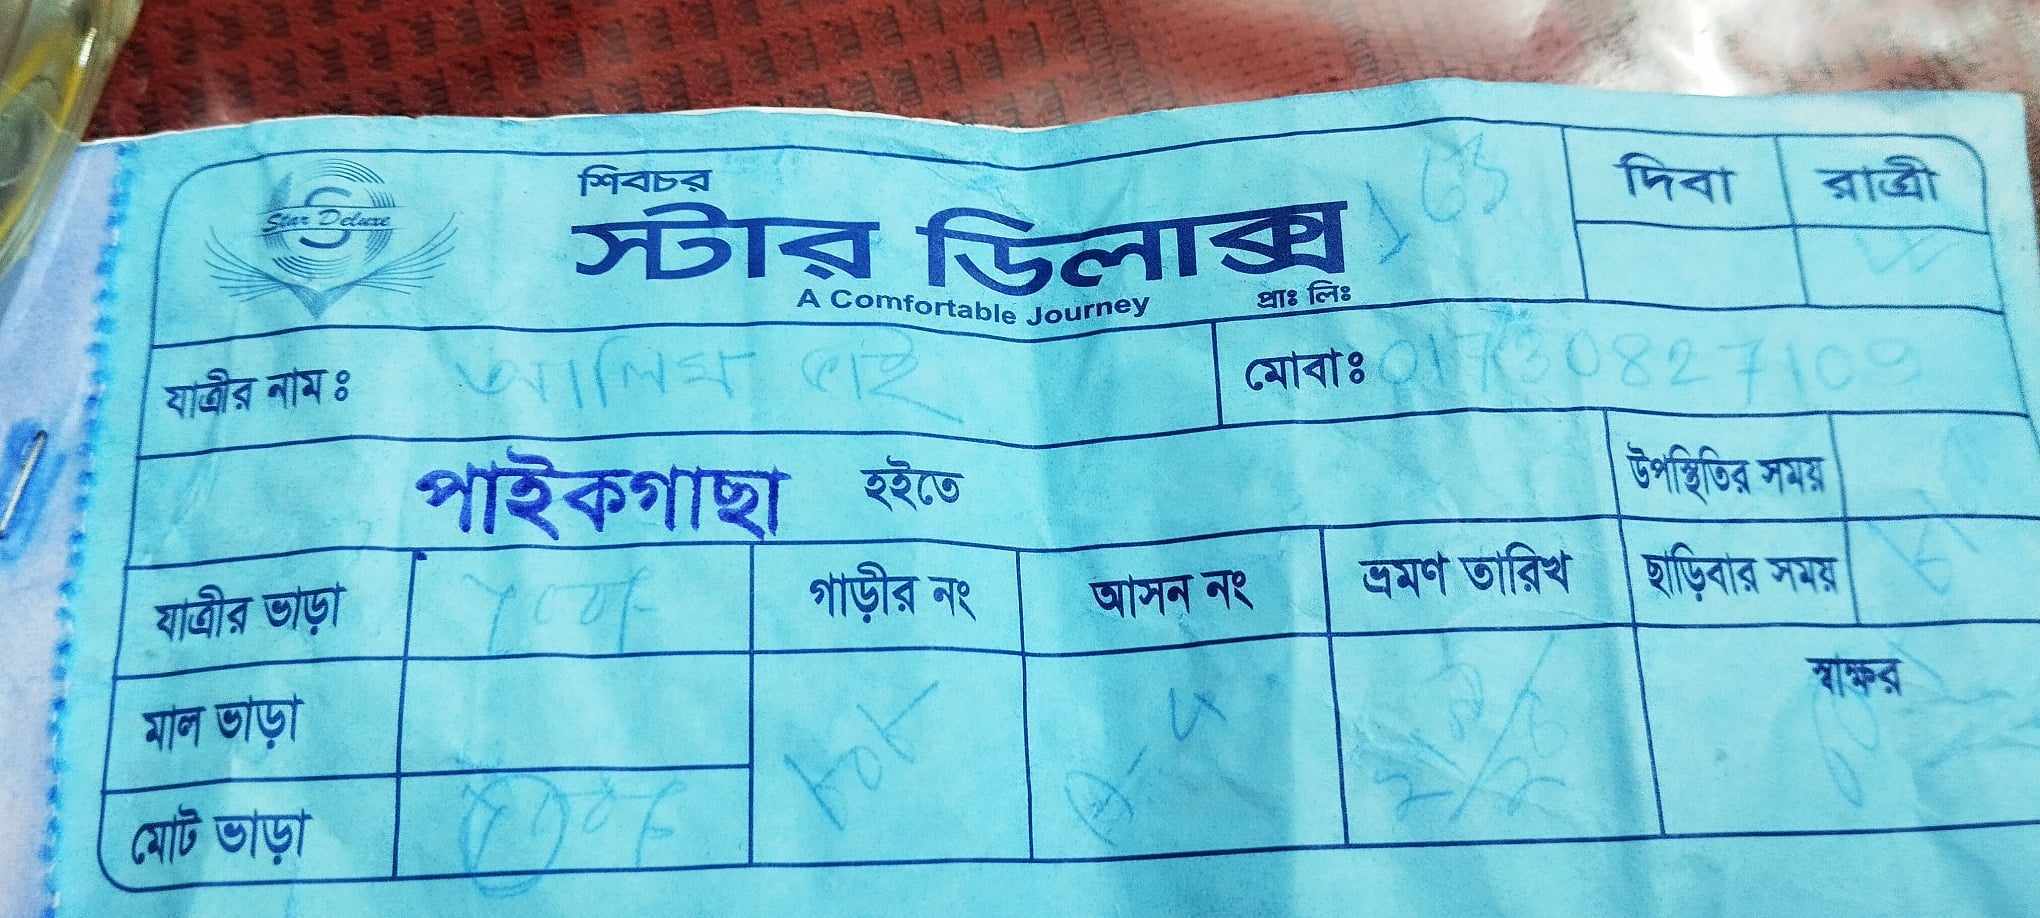 শিবচর
Star Deluxe
স্টার ডিলাক্স
A Comfortable Journey
প্রাঃ লিঃ
163
দিবা রাত্রী
যাত্রীর নাম ঃ আলিম ভাই
মোবাঃ 01730827109
পাইকগাছা হইতে
উপস্থিতির সময়
যাত্রীর ভাড়া
গাড়ীর নং
আসন নং
ভ্রমণ তারিখ
ছাড়িবার সময়
মাল ভাড়া
স্বাক্ষর
মোট ভাড়া